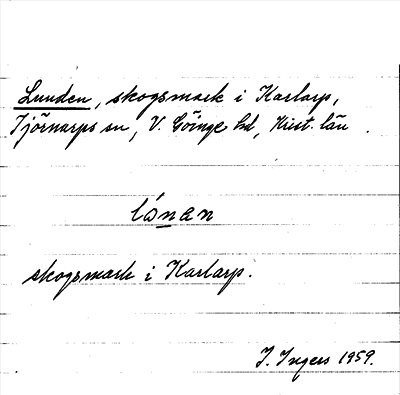 Lunden, skogsmark i Karlarp,
Tjörnarps sn, V. Göinge hd, Krist. län.
ló̱nan
skogsmark i Karlarp.
I. Ingers 1959.